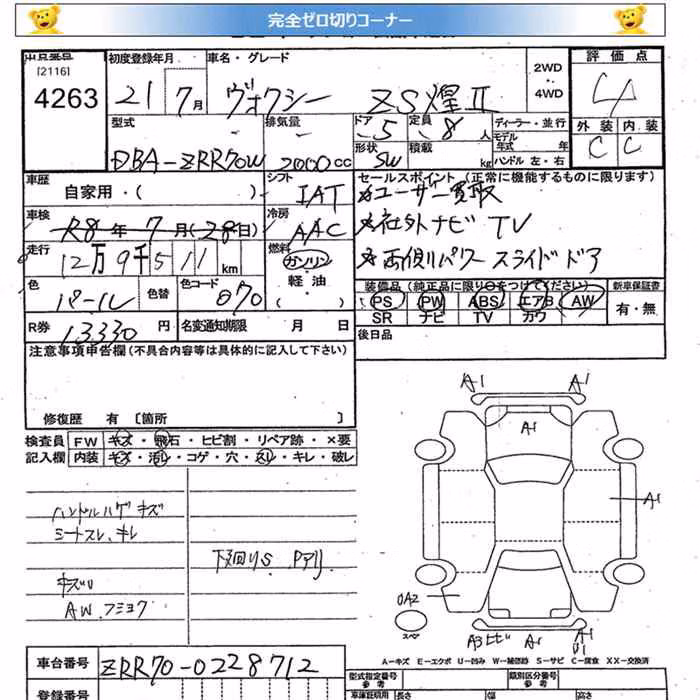 完全ゼロ切りコーナー
出品番号 初度登録年月 車名・グレード 2WD 評価点
[2116] 4WD
4263 21 7月 ヴォクシー ZS煌Ⅱ 4
型式 排気量 ドア 定員 ディーラー・並行 外装 内装
DBA-ZRR70W 2000cc 5 8人 モデル年式 年 C C
形状 積載
SW kg ハンドル 左・右
車歴 シフト セールスポイント(正常に機能するものに限ります)
自家用・( ) IAT *ユーザー買取
車検 冷房 *社外ナビ TV
R8年7月(28日) AAC *両側パワースライドドア
走行 燃料
12万9千511km ガソリン
軽油
( )
色 色替 色コード 装備品(純正品に限り○をつけてください) 新車保証書
パール 070 PS PW ABS エアB AW 有・無
SR ナビ TV カワ
R券 13330円 名変通知期限 月 日 後日品
注意事項申告欄(不具合内容等は具体的に記入して下さい)
修復歴 有 [箇所 ]
検査員 FW キズ・飛石・ヒビ割・リペア跡・×要
記入欄 内装 キズ・汚レ・コゲ・穴・スレ・キレ・破レ
ハンドルハゲ キズ
シートスレ、キレ
下廻りS Pアリ
キズU
AW
A1 A1
A1
A1
0A2
スペア
A3ヒビ A1 A1
U1
A-キズ E-エクボ U-凹み W-補修跡 S-サビ C-腐食 XX-交換済
車台番号 ZRR70-0228712
型式指定番号 類別区分番号
参考 参考
登録番号 車庫証明用 長さ 幅 高さ